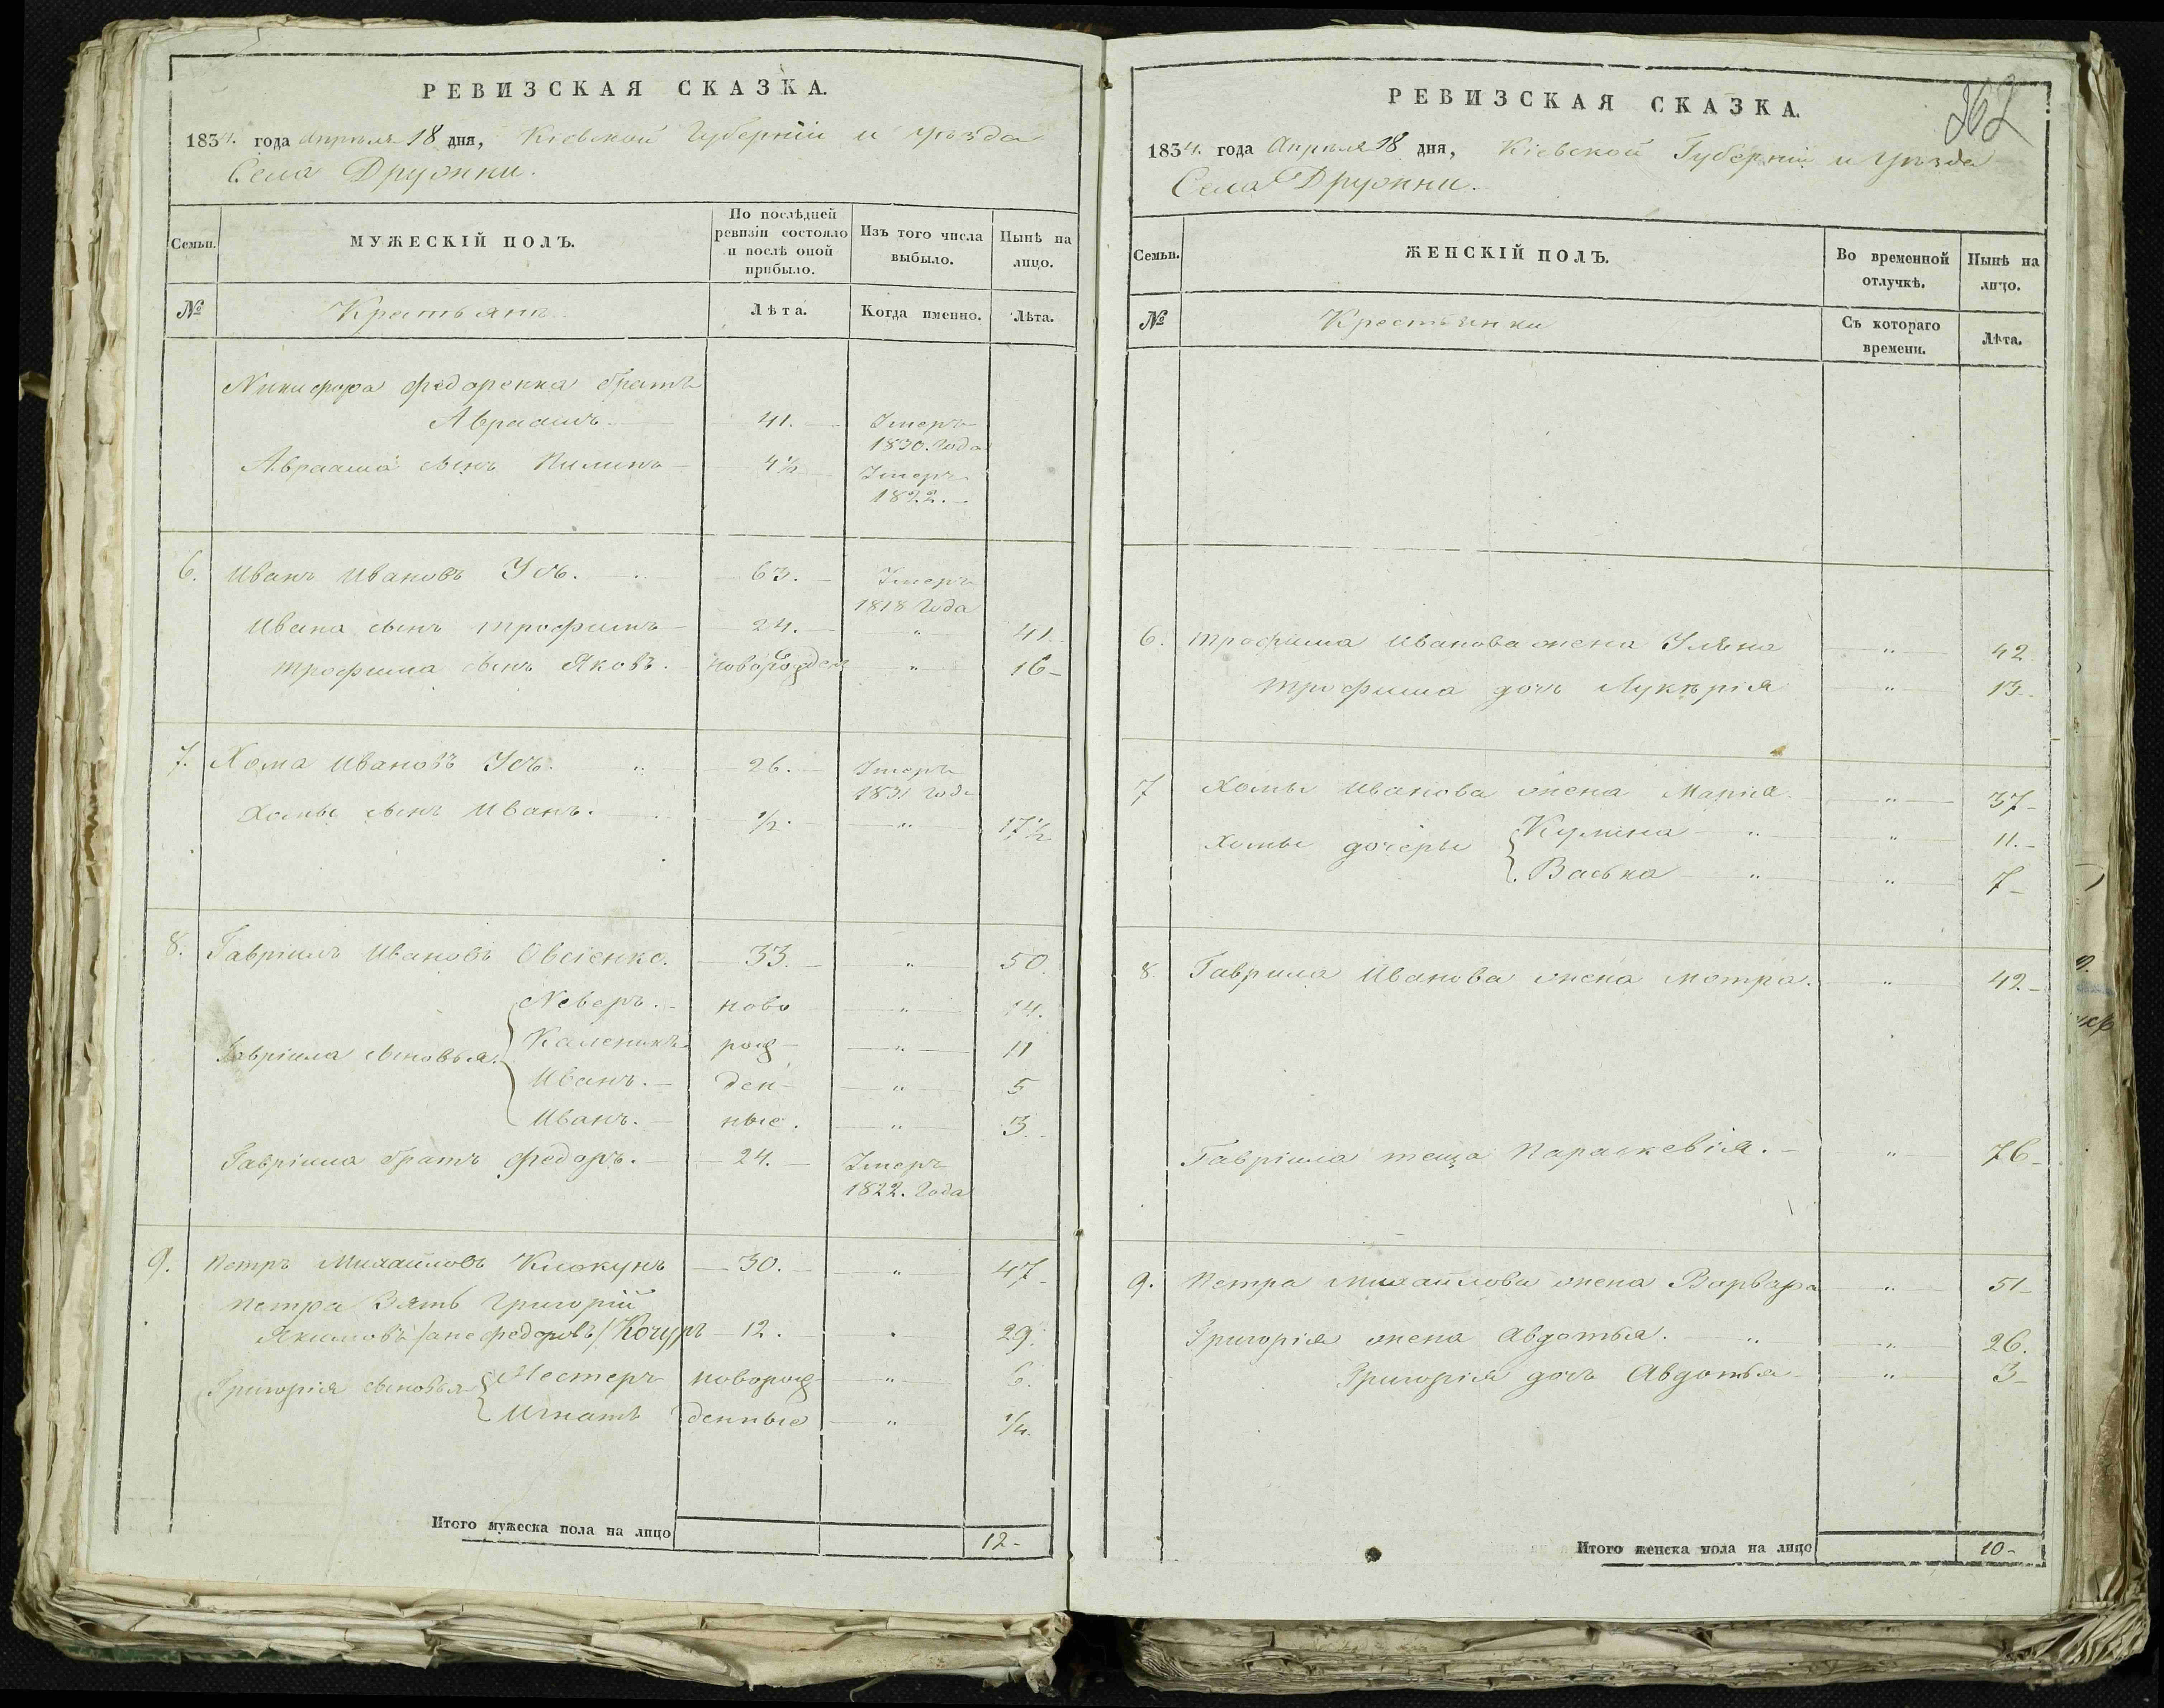 РЕВИЗСКАЯ СКАЗКА.
1834. года Апрѣля 18 дня, Кіевской Губерніи и уѣзда
Села Дружни.
Семьи. МУЖЕСКІЙ ПОЛЪ. По послѣдней ревизіи состояло и послѣ оной прибыло. Изъ того числа выбыло. Нынѣ на лицо.
№ Крестьянъ Лѣта. Когда именно. Лѣта.
Никифора Федоренка братъ
Авраамъ 41. Умеръ
1830. Года
Авраама сынъ Пилипъ 4½ Умеръ
1822.
6. Иванъ Ивановъ Усъ. 63. Умеръ
1818 Года
Ивана сынъ Трофимъ 24. " 41.
Трофима сынъ Яковъ. новорожден " 16
7. Хома Ивановъ Усъ. " 26. Умеръ
1831 Года
Хомы сынъ Иванъ. ½. " 17½
8. Гавріилъ Ивановъ Овсіенко. 33. " 50.
Гавріила сыновья: Неверъ. ново " 14.
Каленикъ рож " 11
Иванъ. ден " 5
Иванъ. ные. " 3
Гавріила братъ Федоръ. 24. Умеръ
1822. Года
9. Петръ Михайловъ Клокунъ 30. " 47
Петра Зять Григорій
Якимовъ /а не Федоровъ/ Кочуръ 12. " 29.
Григорія сыновья Нестеръ новорож " 6.
Игнатъ денные " ¼.
Итого мужеска пола на лицо 12
362
РЕВИЗСКАЯ СКАЗКА.
1834. года Апрѣля 18 дня, Кіевской Губерніи и уѣзда
Села Дружни.
Семьи. ЖЕНСКІЙ ПОЛЪ. Во временной отлучкѣ. Нынѣ на лицо.
№ Крестьянки Съ котораго времени. Лѣта.
6. Трофима Иванова жена Уляна " 42.
Трофима дочь Лукерія " 13
7 Хомы Иванова жена Марія " 37
Хомы дочеры Кулина " " 11.
Васька " " 7
8. Гаврила Иванова жена Мотра. " 42
Гавріила теща Параскевія. " 76
9. Петра Михайлова жена Варвара " 51
Григорія жена Авдотья. " " 26.
Григорія дочь Авдотья " 3
Итого женска пола на лицо 10